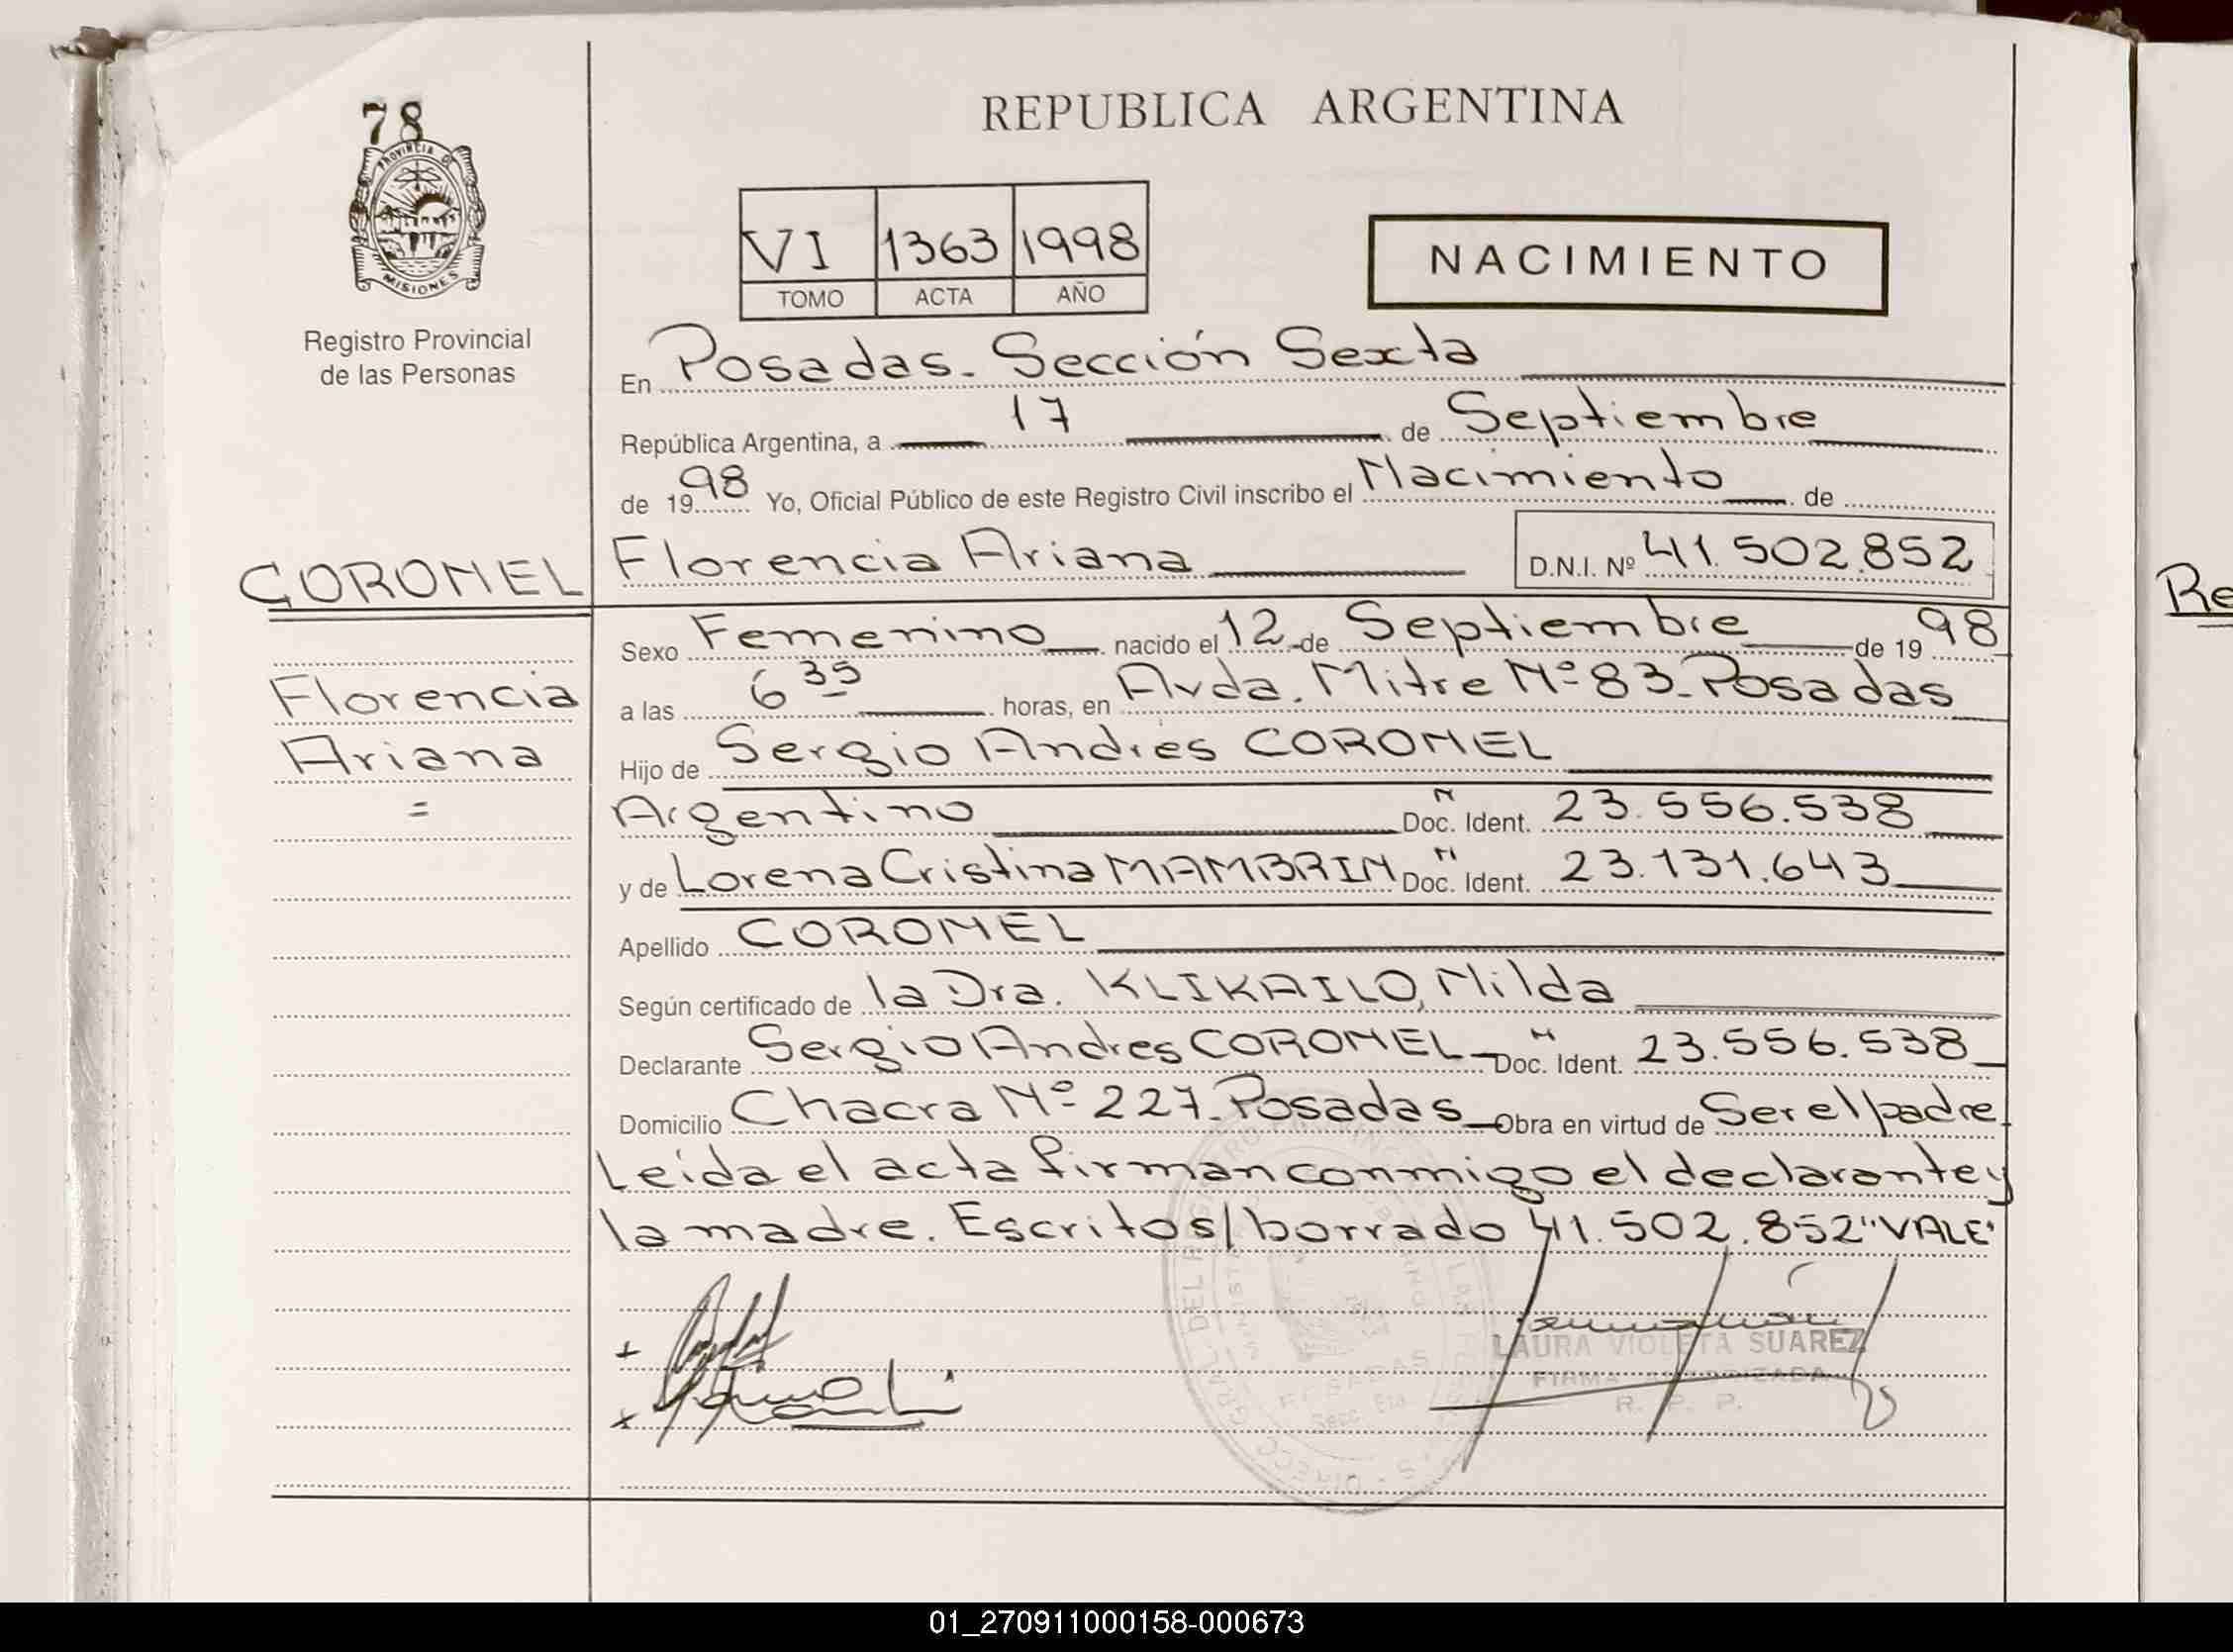 78
PROVINCIA DE
MISIONES
Registro Provincial
de las Personas
REPUBLICA ARGENTINA
VI 1363 1998
TOMO ACTA AÑO
NACIMIENTO
En Posadas. Sección Sexta
República Argentina, a 17 de Septiembre
de 1998 Yo, Oficial Público de este Registro Civil inscribo el Nacimiento de
CORONEL Florencia Ariana D.N.I. Nº 41.502.852
Sexo Femenino nacido el 12 de Septiembre de 1998
Florencia a las 6 35 horas, en Avda. Mitre Nº 83. Posadas
Ariana Hijo de Sergio Andrés CORONEL
= Argentino Doc. N Ident. 23.556.538
y de Lorena Cristina MAMBRIN Doc. N Ident. 23.131.643
Apellido CORONEL
Según certificado de la Dra. KLIKAILO, Nilda
Declarante Sergio Andres CORONEL Doc. N Ident. 23.556.538
Domicilio Chacra Nº 227. Posadas Obra en virtud de Ser el padre.
Leída el acta firman conmigo el declarante y
la madre. Escrito s/borrado 41.502.852 "VALE"
LAURA VIOLETA SUAREZ
FIRMA AUTORIZADA
R. P. P.
Re
01_270911000158-000673